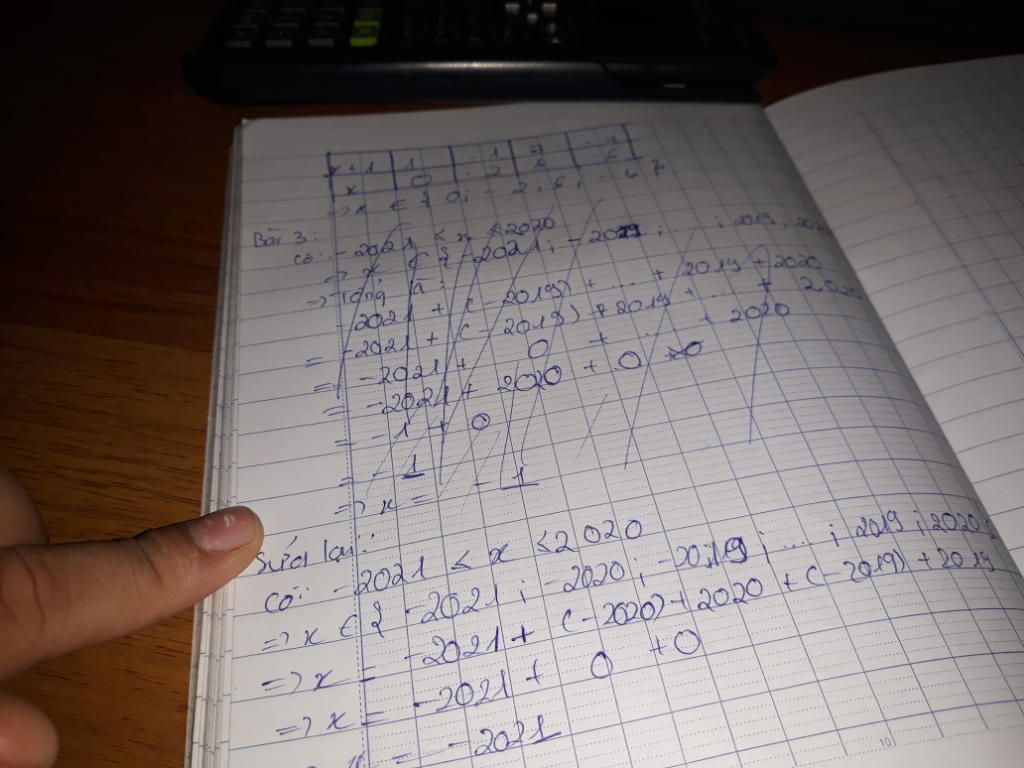 x + 1 | 1 | - 1 | 7 | - 7
x | 0 | - 2 | 6
=> x ∈ { 0; - 2; 6; -
Bài 3:
Có: -2021 ≤ x ≤ 2020
=> x ∈ { -2021; -202; ....; 2019; 202
=> Tổng là:
-2021 + (-2019) + ... + 2019 + 2020
= -2021 + (-2019) + 2019 + ... + 2020
= -2021 + 0 + ... + 2020
= -2021 + 2020 + 0
= -1 + 0
= -1
=> x = -1
Sửa lại:
Có: -2021 ≤ x ≤ 2020
=> x ∈ { -2021; -2020; -2019; ....; 2019; 2020}
=> x = -2021 + (-2020) + 2020 + (-2019) + 2019
=> x = -2021 + 0 + 0
= -2021
10